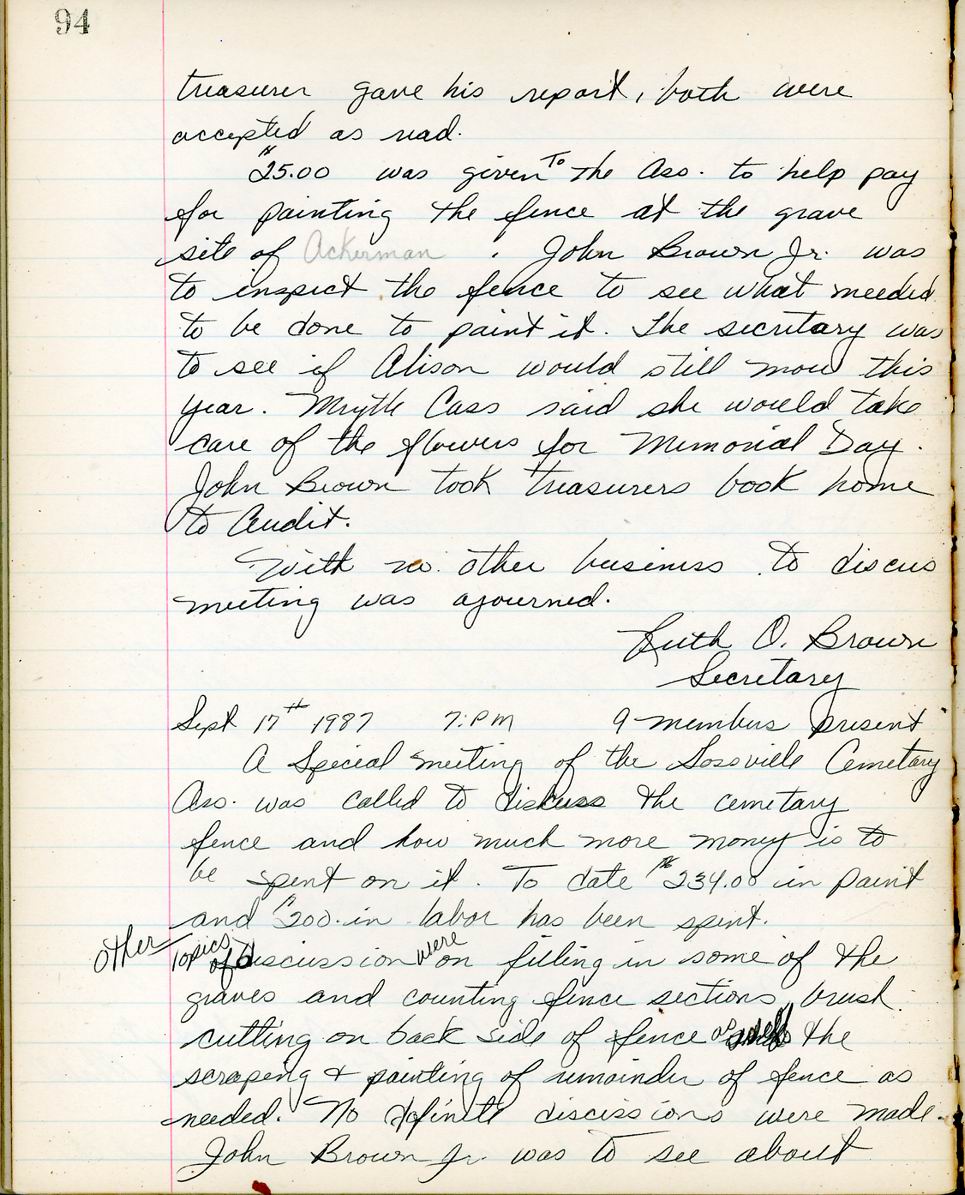 94
treasurer gave his report, both were
accepted as read.
$25.00 was given To the Ass. to help pay
for painting the fence at the grave
site of Ackerman . John Brown Jr. was
to inspect the fence to see what needed
to be done to paint it. The secretary was
to see if Alison would still mow this
year. Mrytle Cass said she would take
care of the flowers for Memorial Day.
John Brown took treasurers book home
to Audit.
With no other business to discus
meeting was ajourned.
Ruth O. Brown
Secretary
Sept 17th 1987 7:PM 9 members present
A Special meeting of the Sossville Cemetary
Ass. was called to discuss the cemetary
fence and how much more money is to
be spent on it. To date $234.00 in paint
and $200. in labor has been spent.
Other Topics of discussion were on filling in some of the
graves and counting fence sections, brush
cutting on back side of fence as well the
scrapeng & painting of remainder of fence as
needed. No definite discissions were made.
John Brown Jr. was to see about